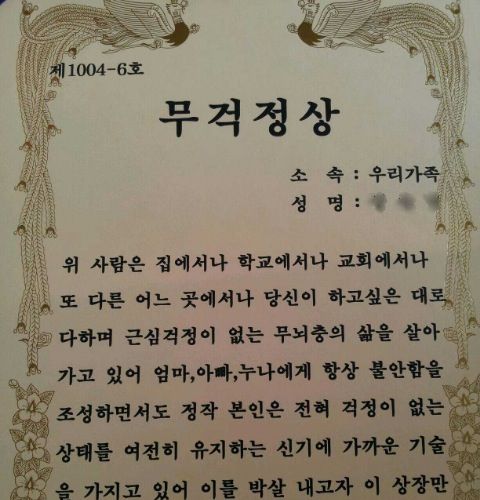 제1004-6호
무걱정상
소 속 : 우리가족
성 명 :
위 사람은 집에서나 학교에서나 교회에서나
또 다른 어느 곳에서나 당신이 하고싶은 대로
다하며 근심걱정이 없는 무뇌충의 삶을 살아
가고 있어 엄마,아빠,누나에게 항상 불안함을
조성하면서도 정작 본인은 전혀 걱정이 없는
상태를 여전히 유지하는 신기에 가까운 기술
을 가지고 있어 이를 박살 내고자 이 상장만